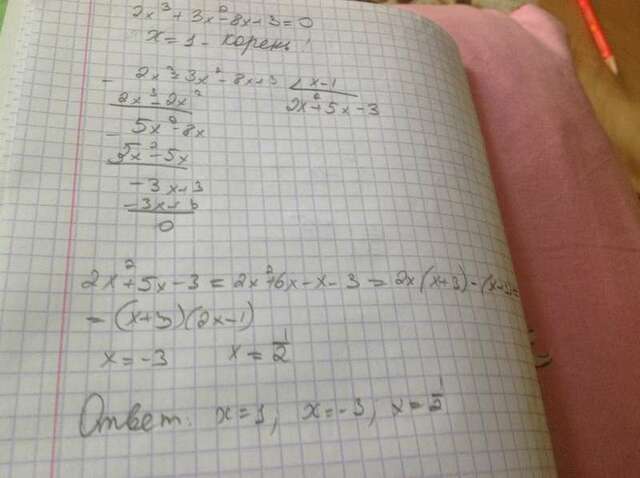 2x³ + 3x² - 8x + 3 = 0
x = 1 - корень!
2x³ + 3x² - 8x + 3 | x - 1
2x³ - 2x² 2x² + 5x - 3
5x² - 8x
5x² - 5x
-3x + 3
-3x + 3
0
2x² + 5x - 3 = 2x² + 6x - x - 3 = 2x(x + 3) - (x + 3) =
= (x + 3)(2x - 1)
x = -3 x = 1/2
Ответ: x = 1, x = -3, x = 1/2